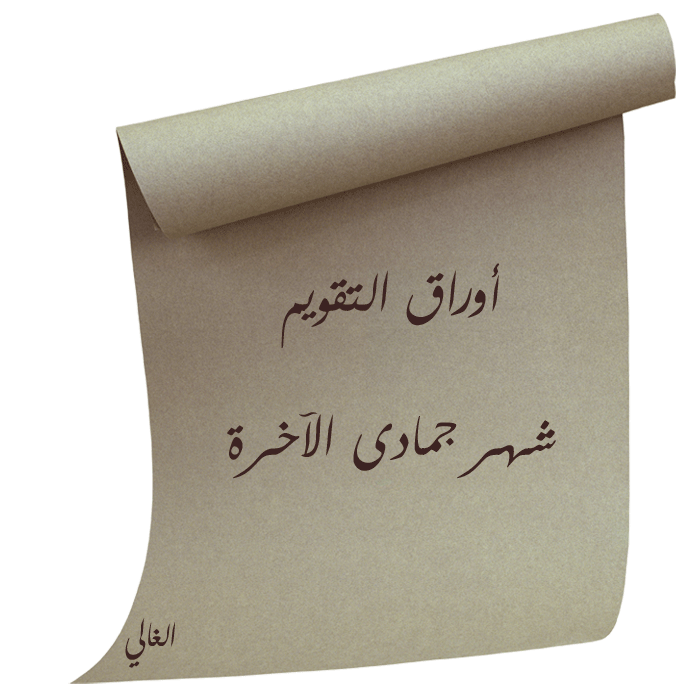 أوراق التقويم
شهر جمادى الآخرة
الغالي